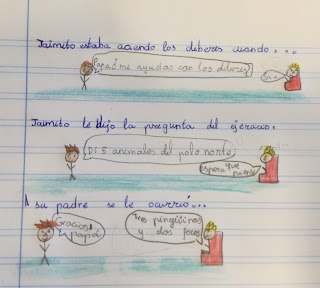 Jaimito estaba aciendo los deberes cuando...
Papá ¿me ayudas con los deberes?
Si.
Jaimito le dijo la pregunta del ejercicio.
Di 5 animales del polo norte
Espera que piense
A su padre se le ocurrió...
Gracias papá
Tres pingüinos y dos focas